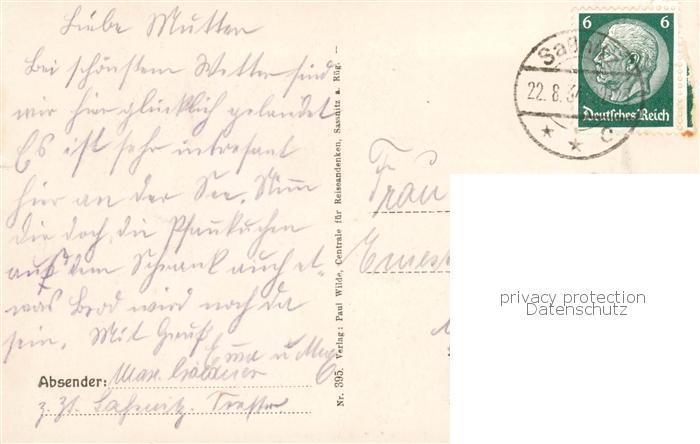 Liebe Mutter
Bei schönstem Wetter sind
wir hier glücklich gelandet
Es ist sehr intresant
hier an der See. Nim
dir doch die Pfankuchen
auf dem Schrank auch et-
was Brod wird noch da
sein. Mit Gruß
Emma u Max
Absender: Max
z. Zt. Saßnitz.
Nr. 395. Verlag: Paul Wilde, Centrale für Reiseandenken, Sassnitz a. Rüg.
6 6
Deutsches Reich
22.8.34
c
Frau
privacy protection
Datenschutz